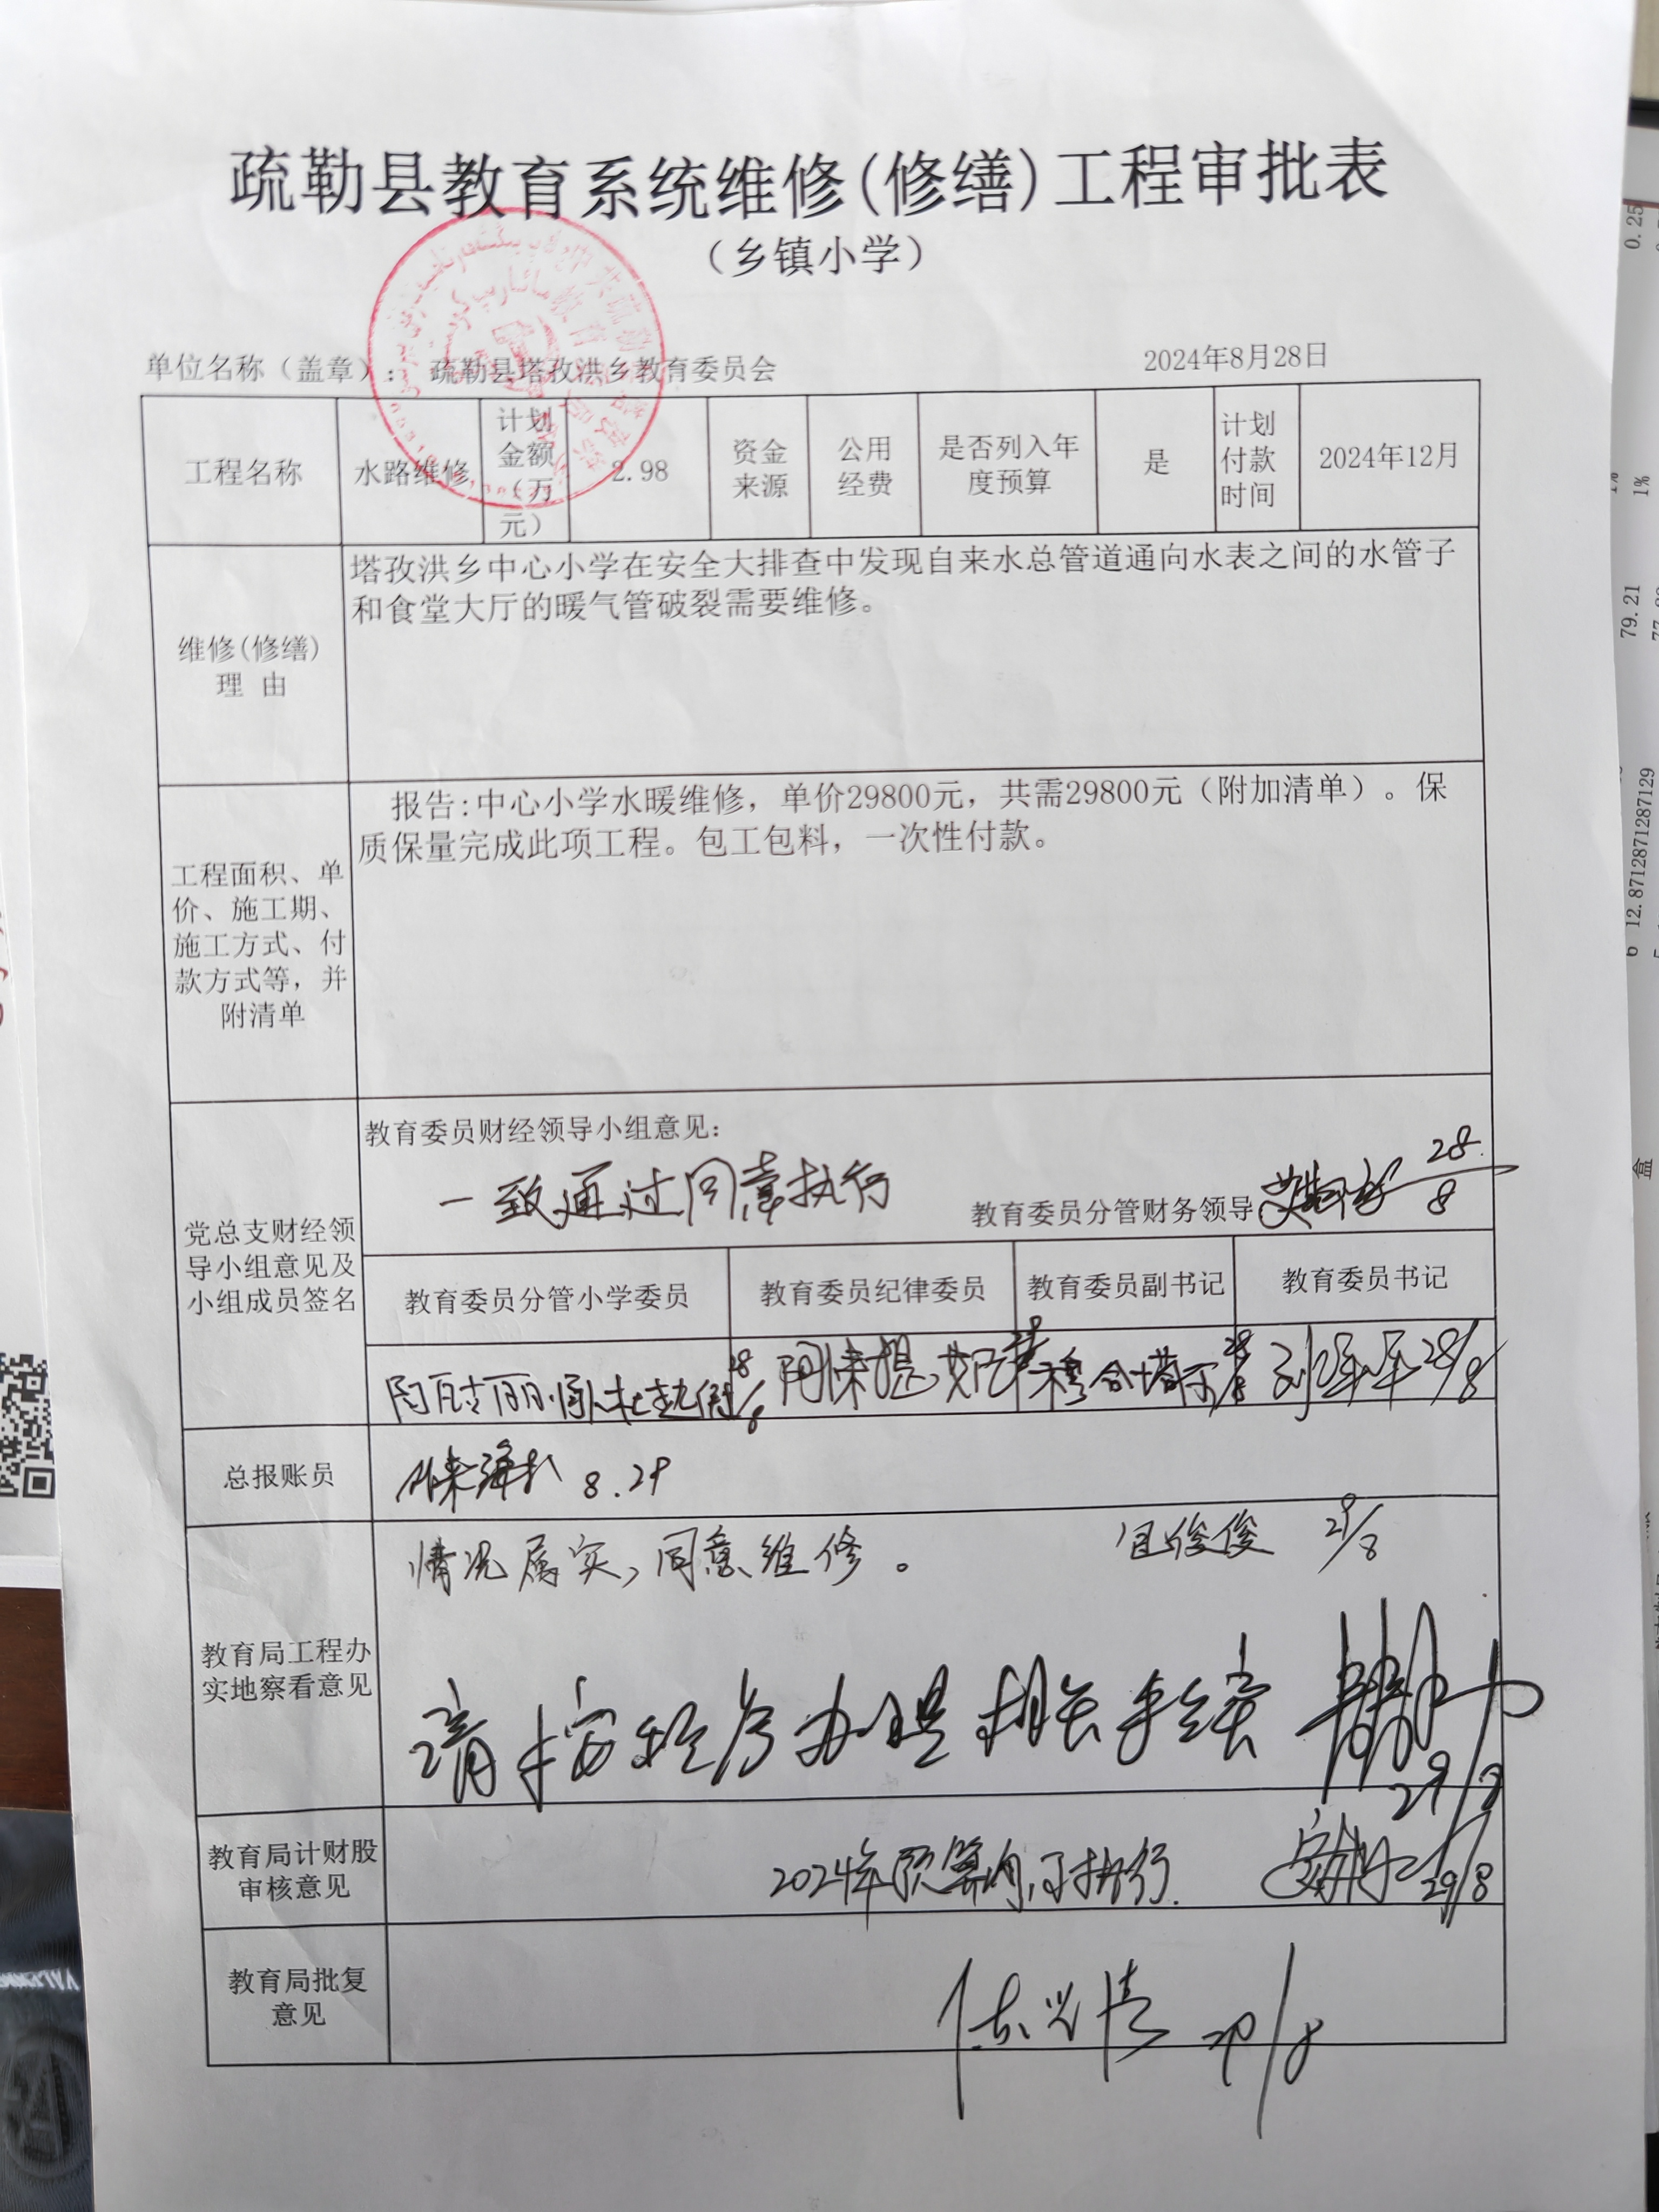 疏勒县教育系统维修(修缮)工程审批表
（乡镇小学）
单位名称（盖章）： 疏勒县塔孜洪乡教育委员会
2024年8月28日
工程名称
水路维修
计划
金额
（万
元）
2.98
资金
来源
公用
经费
是否列入年
度预算
是
计划
付款
时间
2024年12月
维修(修缮)
理 由
塔孜洪乡中心小学在安全大排查中发现自来水总管道通向水表之间的水管子
和食堂大厅的暖气管破裂需要维修。
工程面积、单
价、施工期、
施工方式、付
款方式等，并
附清单
报告:中心小学水暖维修，单价29800元，共需29800元（附加清单）。保
质保量完成此项工程。包工包料，一次性付款。
党总支财经领
导小组意见及
小组成员签名
教育委员财经领导小组意见:
一致通过同意执行
教育委员分管财务领导
28/8
教育委员分管小学委员
教育委员纪律委员
教育委员副书记
教育委员书记
28/8
穆合塔尔 28/8
28/8
总报账员
8.29
教育局工程办
实地察看意见
情况属实，同意维修。
29/8
请按程序办理相关手续
29/8
教育局计财股
审核意见
2024年预算内，可执行.
29/8
教育局批复
意见
29/8
0.25
1%
1%
79.21
6 12.87128712871287129
盒